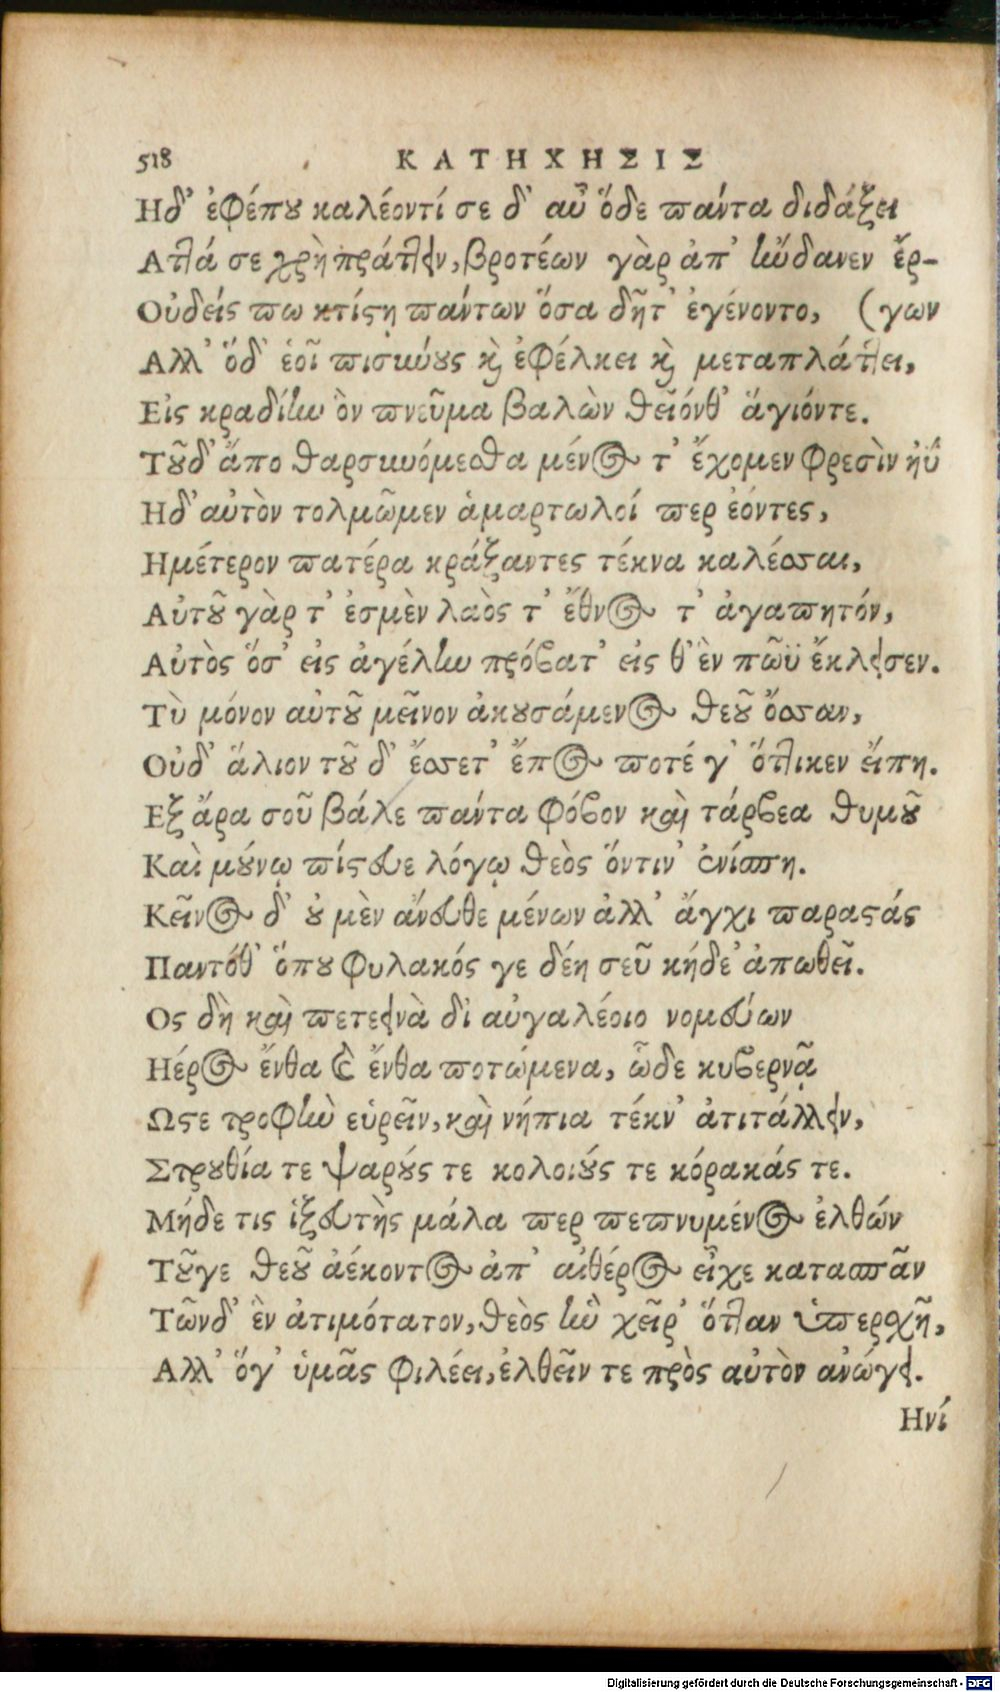 518 ΚΑΤΗΧΗΣΙΣ
Ηδ' ἐφέπου καλέοντί σε δ' αὖ ὅδε πάντα διδάξει
Ατλά σε χρὴ πράτλειν, βροτέων γὰρ ἀπ' ἠΰδανεν ἔρ-
Οὐδείς πω κτίστη πάντων ὅσα δῆτ' ἐγένοντο, (γων
Αλλ' ὅδ' ἑοῖ πισινύους καὶ ἐφέλκει καὶ μεταπλάττει,
Εἰς κραδίην ὃν πνεῦμα βαλὼν θεῖόνθ' ἅγιόντε.
Τοῦδ' ἄπο θαρσηνυόμεσθα μένος τ' ἔχομεν φρεσὶν ἠΰ
Ηδ' αὐτὸν τολμῶμεν ἁμαρτωλοί περ ἐόντες,
Ημέτερον πατέρα κράξαντες τέκνα καλέσσαι,
Αὐτοῦ γὰρ τ' ἐσμὲν λαὸς τ' ἔθνος τ' ἀγαπητόν,
Αὐτὸς ὅσ' εἰς ἀγέλην πρόβατ' εἰς θ' ἓν πῶϋ ἔκλεισεν.
Τὺ μόνον αὐτοῦ μεῖνον ἀκουσάμενος θεοῦ ὄσσαν,
Οὐδ' ἅλιον τοῦ δ' ἔσσετ' ἔπος ποτέ γ' ὅττι κεν εἴπη.
Εξ ἄρα σοῦ βάλε πάντα φόβον καὶ τάρβεα θυμοῦ
Καὶ μούνῳ πίστευε λόγῳ θεὸς ὅντιν' ἐνίσπη.
Κεῖνος δ' οὐ μὲν ἄνευθε μένων ἀλλ' ἄγχι παραστάς
Παντόθ' ὅπου φυλακός γε δέη σεῦ κήδε' ἀπωθεῖ.
Ος δὴ καὶ πετεεινὰ δι' αὐγαλέοιο νομεύων
Ηέρος ἔνθα καὶ ἔνθα ποτώμενα, ὧδε κυβερνᾷ
Ωστε τροφὴν εὑρεῖν, καὶ νήπια τέκν' ἀτιτάλλειν,
Στρουθία τε ψαρούς τε κολοιούς τε κόρακάς τε.
Μήδε τις ἰξευτὴς μάλα περ πεπνυμένος ἐλθών
Τοῦγε θεοῦ ἀέκοντος ἀπ' αἰθέρος εἶχε κατασπᾶν
Τῶνδ' ἓν ἀτιμότατον, θεὸς ἢν χεῖρ' ὅτταν ὑπερσχῇ,
Αλλ' ὅγ' ὑμᾶς φιλέει, ἐλθεῖν τε πρὸς αὐτὸν ἀνώγει.
Ηνί
Digitalisierung gefördert durch die Deutsche Forschungsgemeinschaft - DFG